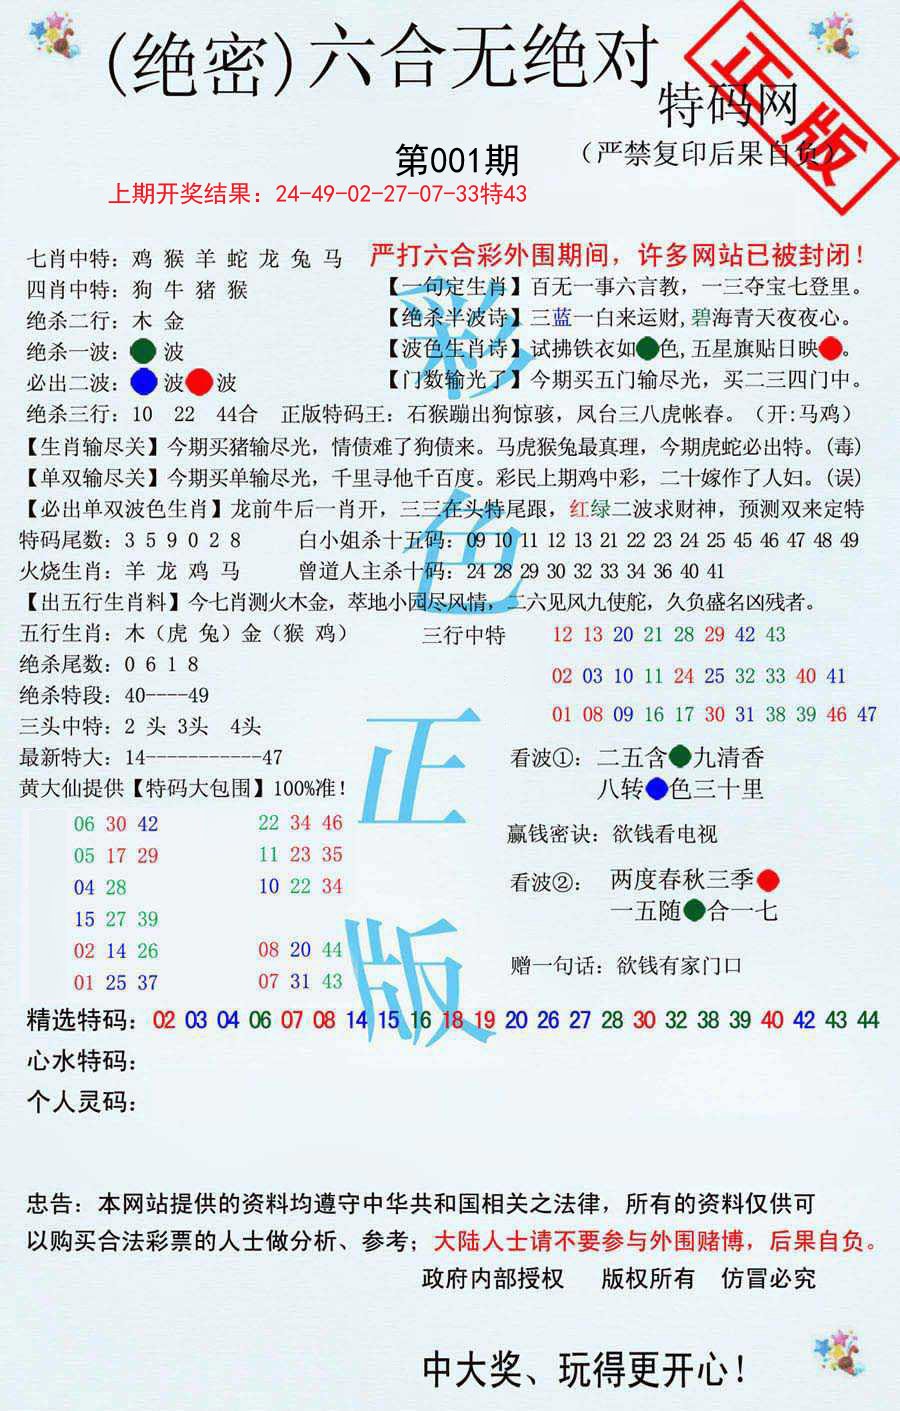 (绝密)六合无绝对
特码网
正版
第001期
（严禁复印后果自负）
上期开奖结果：24-49-02-27-07-33特43
七肖中特：鸡 猴 羊 蛇 龙 兔 马
严打六合彩外围期间，许多网站已被封闭！
四肖中特：狗 牛 猪 猴
【一句定生肖】百无一事六言教，一三夺宝七登里。
绝杀二行：木 金
【绝杀半波诗】三蓝一白来运财,碧海青天夜夜心。
绝杀一波： 波
【波色生肖诗】试拂铁衣如 色,五星旗贴日映 。
必出二波： 波 波
【门数输光了】今期买五门输尽光，买二三四门中。
绝杀三行：10 22 44合 正版特码王：石猴蹦出狗惊骇，凤台三八虎帐春。（开:马鸡）
【生肖输尽关】今期买猪输尽光，情债难了狗债来。马虎猴兔最真理，今期虎蛇必出特。(毒)
【单双输尽关】今期买单输尽光，千里寻他千百度。彩民上期鸡中彩，二十嫁作了人妇。(误)
【必出单双波色生肖】龙前牛后一肖开，三三在头特尾跟，红绿二波求财神，预测双来定特
特码尾数：3 5 9 0 2 8
白小姐杀十五码：09 10 11 12 13 21 22 23 24 25 45 46 47 48 49
火烧生肖：羊 龙 鸡 马
曾道人主杀十码：24 28 29 30 32 33 34 36 40 41
【出五行生肖料】今七肖测火木金，萃地小园尽风情，二六见风九使舵，久负盛名凶残者。
五行生肖：木（虎 兔）金（猴 鸡）
三行中特
12 13 20 21 28 29 42 43
绝杀尾数：0 6 1 8
02 03 10 11 24 25 32 33 40 41
绝杀特段：40----49
01 08 09 16 17 30 31 38 39 46 47
三头中特：2 头 3头 4头
最新特大：14-----------47
看波①：二五含 九清香
八转 色三十里
黄大仙提供【特码大包围】100%准！
06 30 42 22 34 46
05 17 29 11 23 35
04 28 10 22 34
15 27 39
02 14 26 08 20 44
01 25 37 07 31 43
赢钱密诀：欲钱看电视
看波②：两度春秋三季
一五随 合一七
赠一句话：欲钱有家门口
彩色正版
精选特码：02 03 04 06 07 08 14 15 16 18 19 20 26 27 28 30 32 38 39 40 42 43 44
心水特码：
个人灵码：
忠告：本网站提供的资料均遵守中华共和国相关之法律，所有的资料仅供可
以购买合法彩票的人士做分析、参考；大陆人士请不要参与外围赌博，后果自负。
政府内部授权 版权所有 仿冒必究
中大奖、玩得更开心！